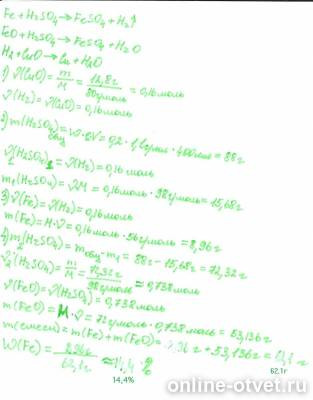 Fe+H2SO4→FeSO4+H2↑
FeO+H2SO4→FeSO4+H2O
H2+CuO→Cu+H2O
1) ν(CuO)=m/M=12,8г/80г/моль=0,16моль
ν(H2)=ν(CuO)=0,16моль
2) m(H2SO4)общ=W·ρV=0,2·1,1г/мл·400мл=88г
ν1(H2SO4)=ν(H2)=0,16моль
m1(H2SO4)=νM=0,16моль·98г/моль=15,68г
3) ν(Fe)=ν(H2)=0,16моль
m(Fe)=M·ν=0,16моль·56г/моль=8,96г
4) m2(H2SO4)=mобщ-m1=88г-15,68г=72,32г
ν2(H2SO4)=m/M=72,32г/98г/моль≈0,738моль
ν(FeO)=ν(H2SO4)=0,738моль
m(FeO)=M·ν=72г/моль·0,738моль=53,136г
m(смеси)=m(Fe)+m(FeO)=8,96г+53,136г=62,1г
W(Fe)=8,96г/62,1г≈14,4%
14,4%
62.1г
online-otvet.ru